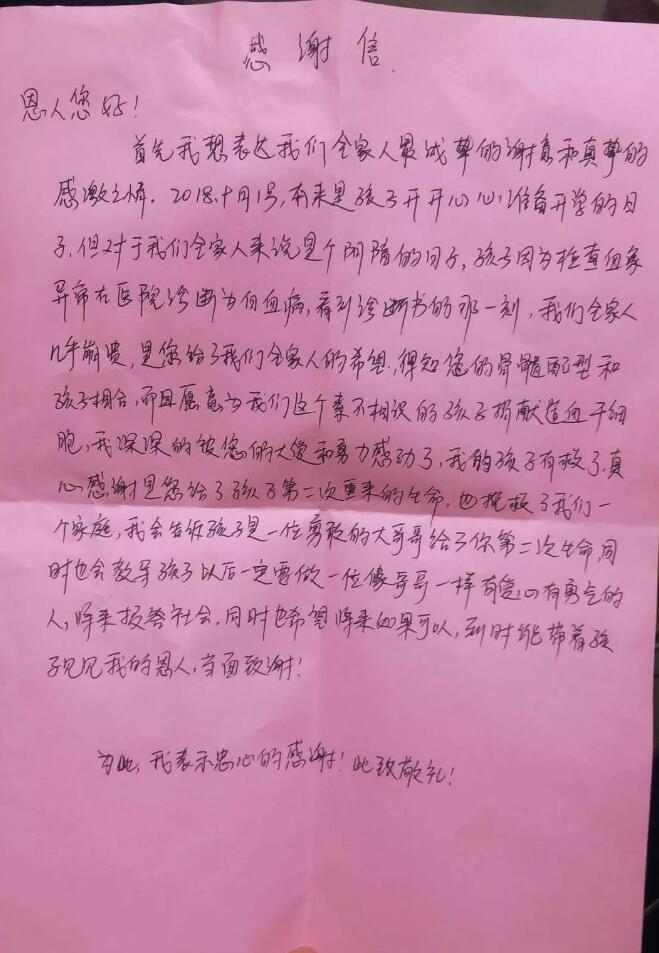 感谢信
恩人您好!
首先我想表达我们全家人最诚挚的谢意和真挚的
感激之情. 2018.十月1号,本来是孩子开开心心准备开学的日
子,但对于我们全家人来说是个阴暗的日子,孩子因为检查血象
异常在医院诊断为白血病,看到诊断书的那一刻,我们全家人
几乎崩溃,是您给了我们全家人的希望,得知您的骨髓配型和
孩子相合,而且愿意为我们这个素不相识的孩子捐献造血干细
胞,我深深的被您的大爱和勇力感动了,我的孩子有救了,真
心感谢是您给了孩子第二次重来的生命,也挽救了我们一
个家庭,我会告诉孩子是一位勇敢的大哥哥给了你第二次生命,同
时也会教导孩子以后一定要做一位像哥哥一样有爱心有勇气的
人,将来报答社会,同时也希望将来如果可以,到时能带着孩
子见见我的恩人,当面致谢!
为此,我表示忠心的感谢!此致敬礼!